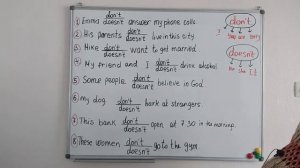 ① Emma don't / doesn't answer my phone calls.
② His parents don't / doesn't live in this city.
③ Mike don't / doesn't want to get married.
④ My friend and I don't / doesn't drink alcohol.
⑤ Some people don't / doesn't believe in God.
⑥ My dog don't / doesn't bark at strangers.
⑦ This bank don't / doesn't open at 7.30 in the morning.
⑧ These women don't / doesn't go to the gym.
don't
I you we they
doesn't
he she it